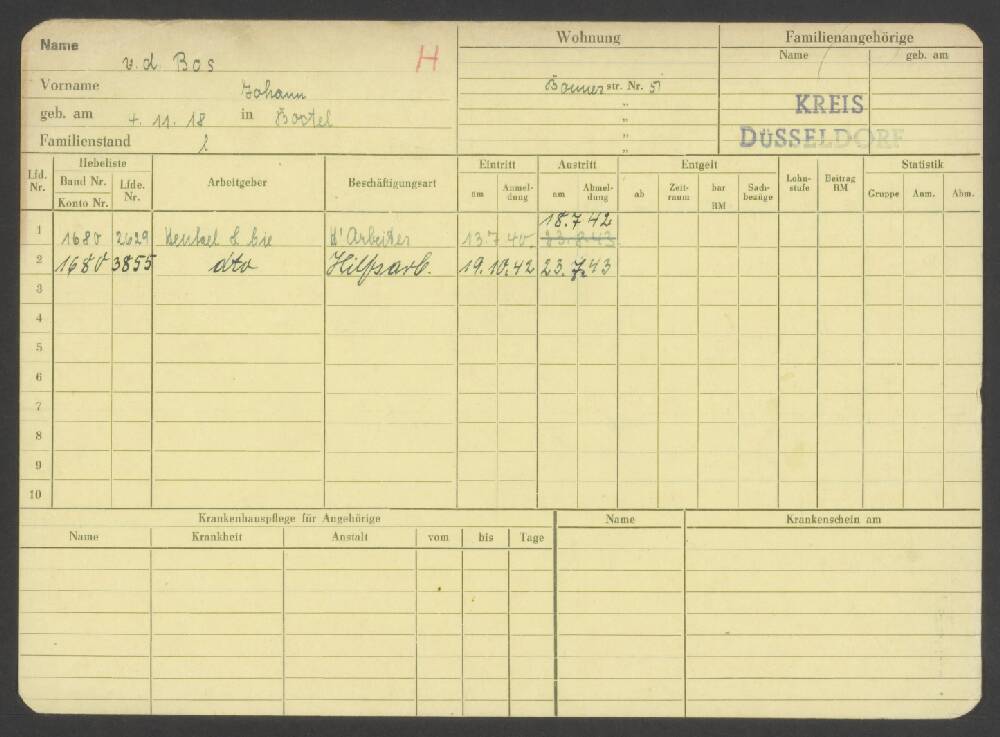 Name v. d. Bos H
Vorname Johann
geb. am 4. 11. 18 in Boxtel
Familienstand l
Wohnung
Bonner str. Nr. 51
"
"
"
"
Familienangehörige
Name geb. am
KREIS
DÜSSELDORF
Lfd. Nr. Hebeliste Arbeitgeber Beschäftigungsart Eintritt Austritt Entgelt Lohn-stufe Beitrag RM Statistik
Band Nr. Konto Nr. Lfde. Nr. am Anmel-dung am Abmel-dung ab Zeit-raum bar RM Sach-bezüge Gruppe Anm. Abm.
18.7.42
1 1680 2629 Henkel & Cie H'Arbeiter 13.7.40. 23.8.43
2 1680 3855 dto Hilfsarb. 19.10.42 23.7.43
3
4
5
6
7
8
9
10
Krankenhauspflege für Angehörige
Name Krankheit Anstalt vom bis Tage
Name Krankenschein am